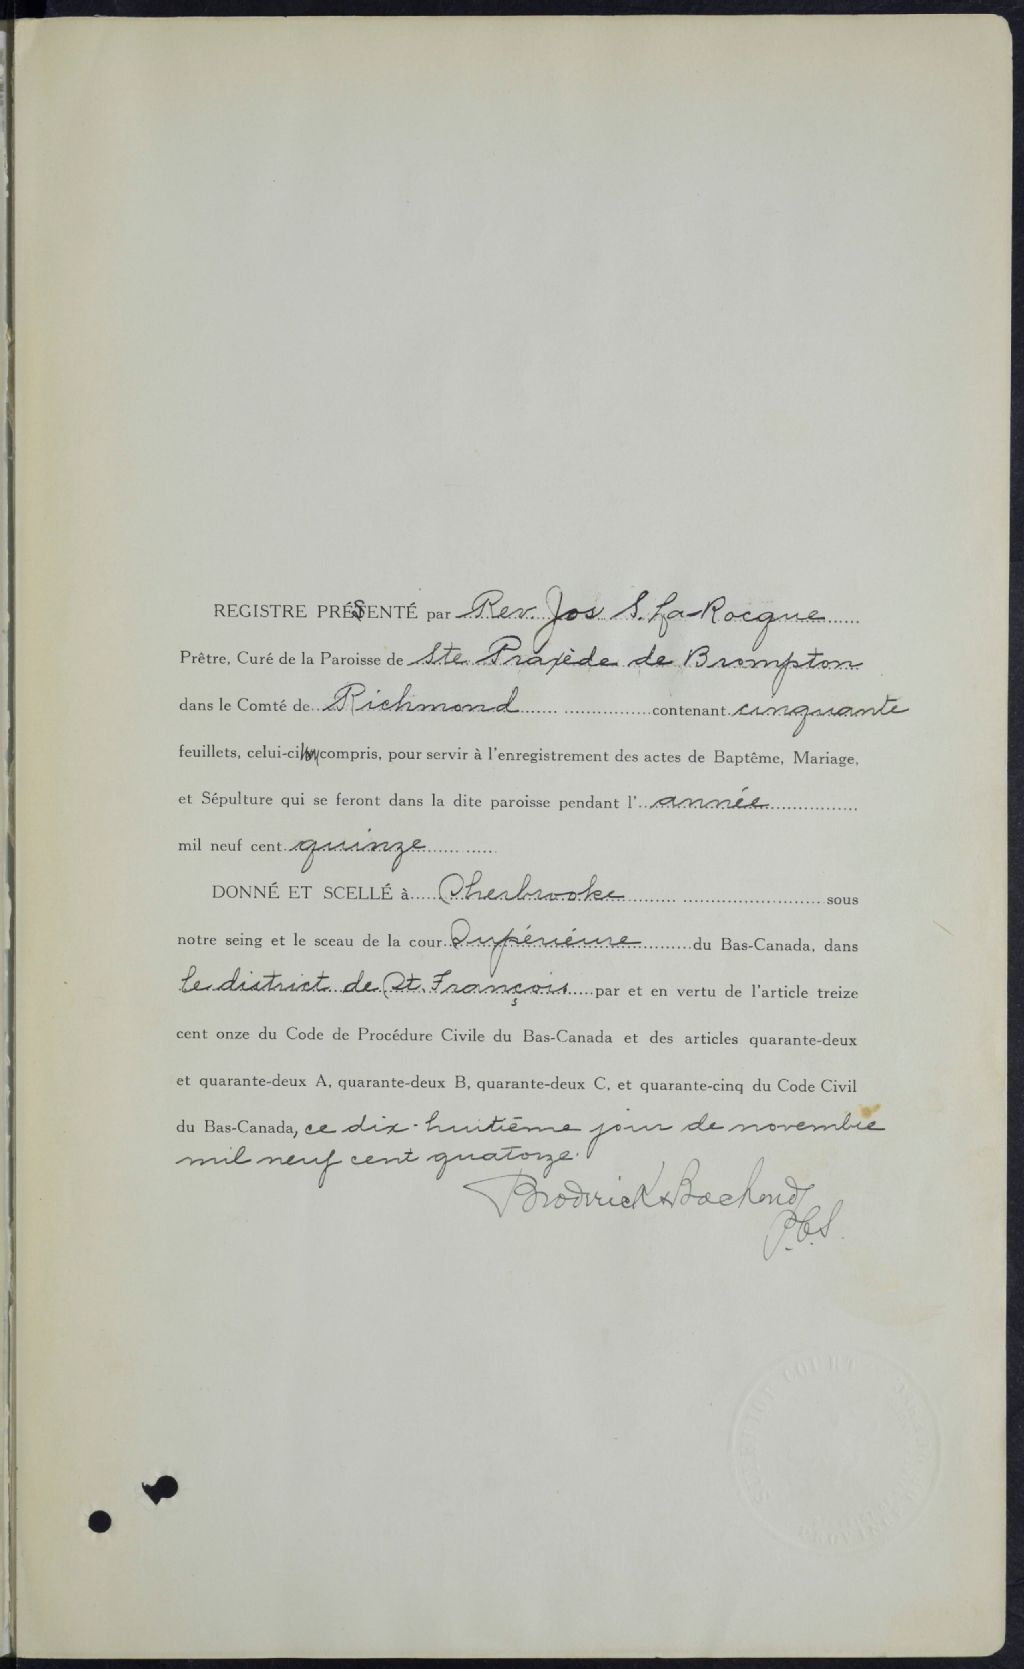 REGISTRE PRÉSENTÉ par Rev. Jos S. La-Rocque
Prêtre, Curé de la Paroisse de Ste Praxède de Brompton
dans le Comté de Richmond contenant cinquante
feuillets, celui-ci non compris, pour servir à l'enregistrement des actes de Baptême, Mariage,
et Sépulture qui se feront dans la dite paroisse pendant l' année
mil neuf cent quinze
DONNÉ ET SCELLÉ à Sherbrooke sous
notre seing et le sceau de la cour Supérieure du Bas-Canada, dans
le district de St. François par et en vertu de l'article treize
cent onze du Code de Procédure Civile du Bas-Canada et des articles quarante-deux
et quarante-deux A, quarante-deux B, quarante-deux C, et quarante-cinq du Code Civil
du Bas-Canada, ce dix-huitième jour de novembre
mil neuf cent quatorze.
Broderick & Bachand
P.C.S.
SUPERIOR COURT